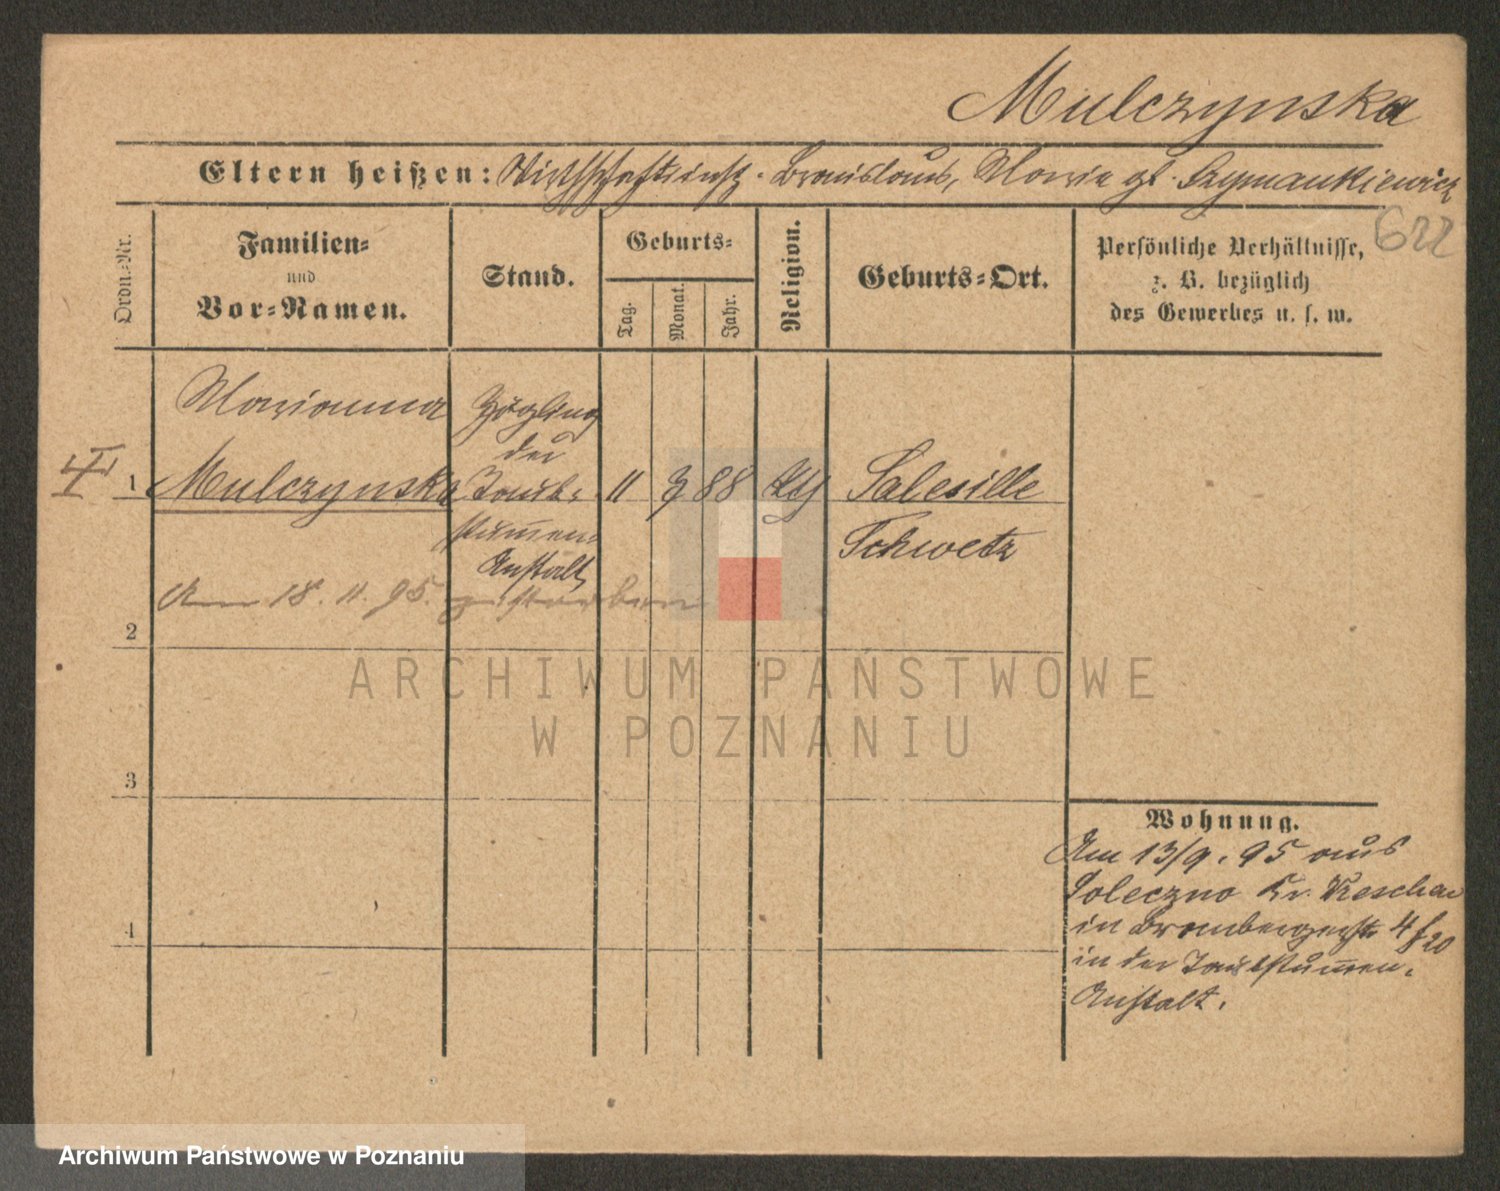 Mulczynska
Eltern heißen: Wirthschaftsinsp. Bronislaus, Maria gb. Szymankiewicz
622
Ordn.-Nr.
Familien-
und
Vor-Namen.
Stand.
Geburts-
Tag.
Monat.
Jahr.
Religion.
Geburts-Ort.
Persönliche Verhältnisse,
z. B. bezüglich
des Gewerbes u. s. w.
Marianna
Zögling
der
1 Mulczynska Taub- 11 3 88 Salesille
stummen-
Anstalt
Schwetz
Am 18. 11. 95. gestorben
2
3
4
Wohnung.
Am 13/9. 95 aus
Soleczno Kr. Wreschen
in Brombergerstr 4
in der Taubstummen-
Anstalt.
ARCHIWUM PAŃSTWOWE
W POZNANIU
Archiwum Państwowe w Poznaniu